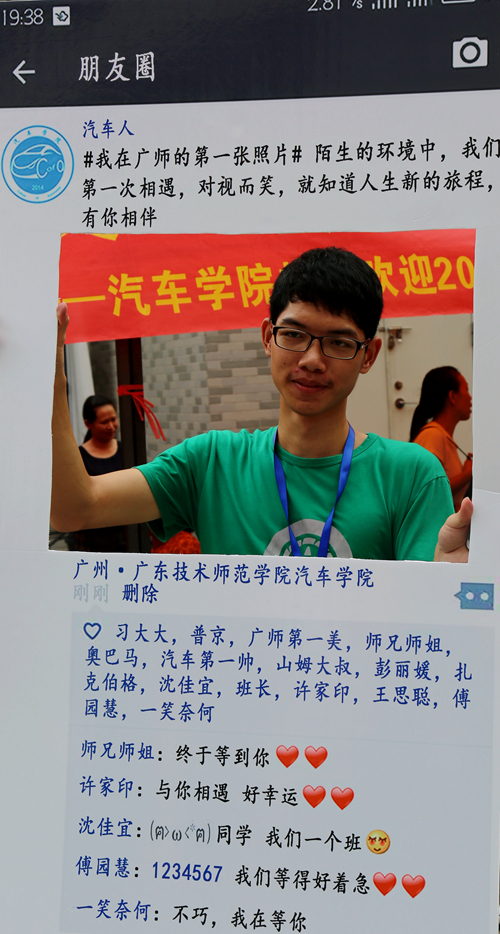 19:38
2.81 /s
朋友圈
汽车人
#我在广师的第一张照片# 陌生的环境中，我们
第一次相遇，对视而笑，就知道人生新的旅程，
有你相伴
汽车学院
2014
一汽车学院 欢迎20
广州·广东技术师范学院汽车学院
刚刚 删除
习大大，普京，广师第一美，师兄师姐，
奥巴马，汽车第一帅，山姆大叔，彭丽媛，扎
克伯格，沈佳宜，班长，许家印，王思聪，傅
园慧，一笑奈何
师兄师姐：终于等到你❤️❤️
许家印：与你相遇 好幸运❤️❤️
沈佳宜：(ฅ>ω<*ฅ)同学 我们一个班😍
傅园慧：1234567 我们等得好着急❤️❤️
一笑奈何：不巧，我在等你